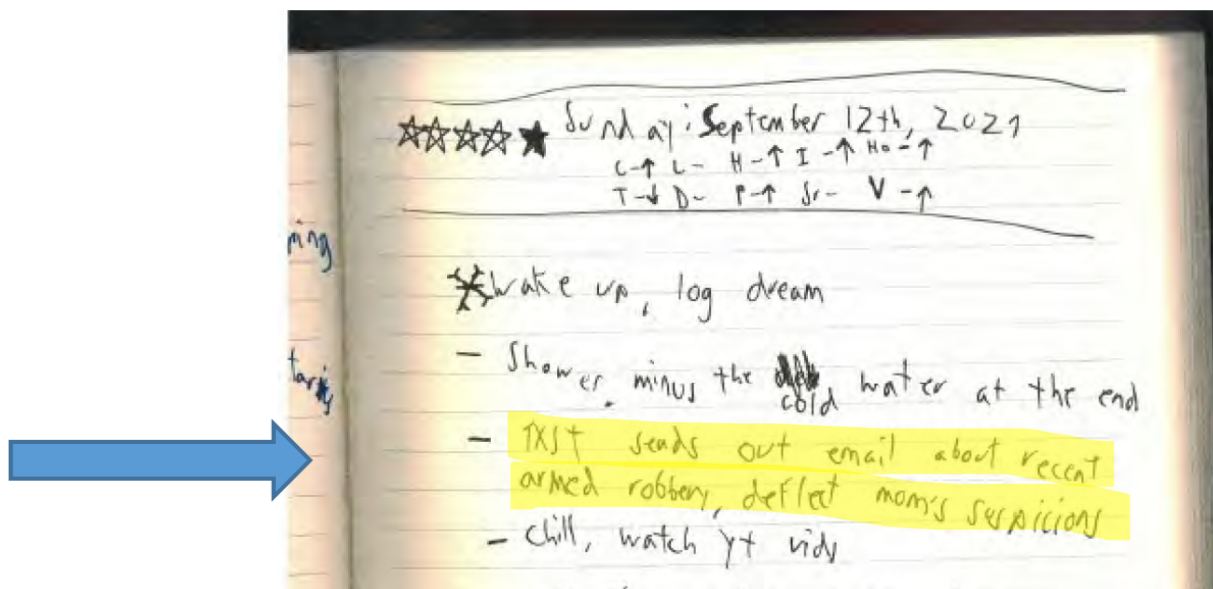 Sunday: September 12th, 2021
C-↑ L- H-↑ I-↑ Ho-↑
T-↓ D- P-↑ Sr- V-↑
ping
wake up, log dream
- Shower, minus the cold water at the end
- TXST sends out email about recent
armed robbery, deflect mom's suspicions
- Chill, watch yt vids